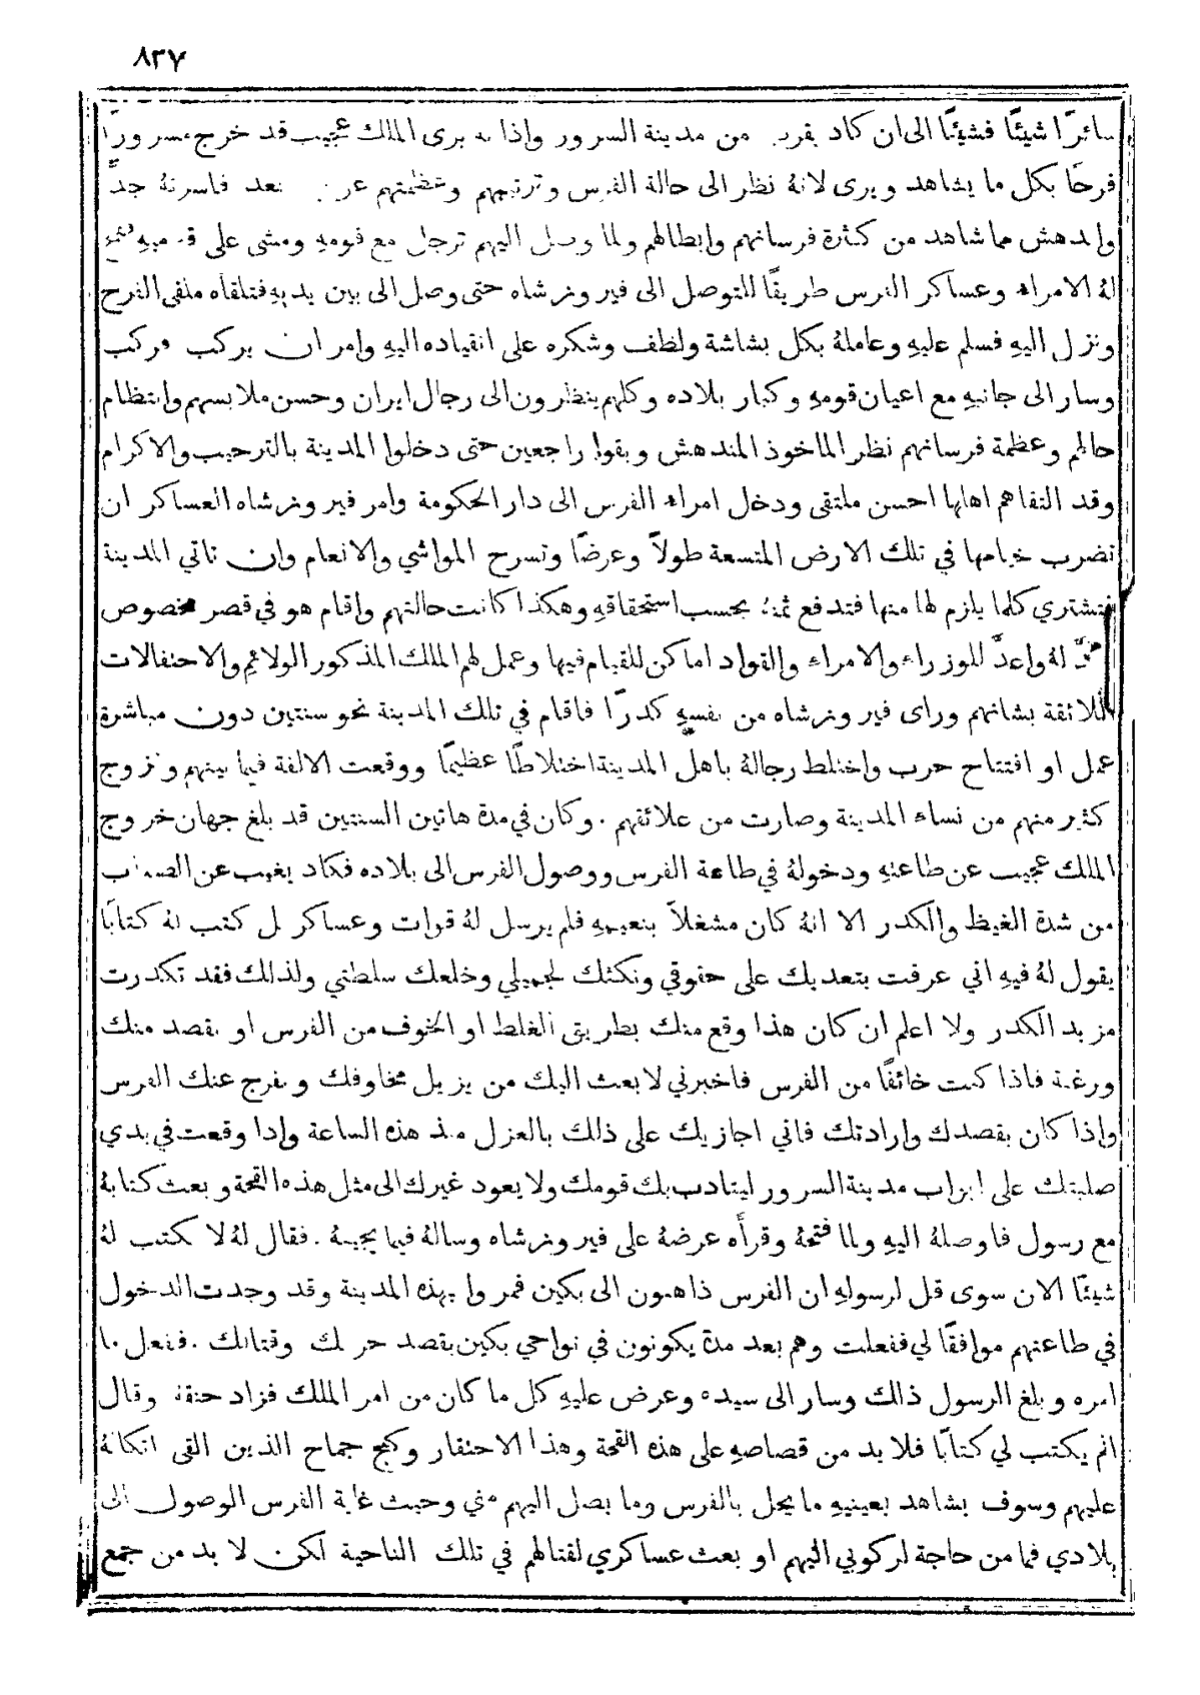 ٨٣٧
سائرًا شيئًا فشيئًا الى ان كاد يقرب من مدينة السرور واذا به يرى الملك عجيب قد خرج مسرورًا
فرحًا بكل ما يشاهد ويرى لانهُ نظر الى حالة الفرس وترتيبهم وعظمتهم عن بعد فاسرتهُ جدًّا
واندهش مما شاهد من كثرة فرسانهم وابطالهم ولما وصل اليهم ترجل مع قومهِ ومشى على قدميهِ ففتح
لهُ الامراء وعساكر الفرس طريقًا للتوصل الى فيروزشاه حتى وصل الى بين يديهِ فتلقاه ملقى الفرح
ونزل اليهِ فسلم عليهِ وعاملهُ بكل بشاشة ولطف وشكره على انقياده اليهِ وامر ان يركب فركب
وسار الى جانبهِ مع اعيان قومهِ وكبار بلاده وكلهم ينظرون الى رجال ايران وحسن ملابسهم وانتظام
حالهم وعظمة فرسانهم نظر الماخوذ المندهش وبقوا راجعين حتى دخلوا المدينة بالترحيب والاكرام
وقد التقاهم اهلها احسن ملتقى ودخل امراء الفرس الى دار الحكومة وامر فيروزشاه العساكر ان
تضرب خيامها في تلك الارض المتسعة طولاً وعرضًا وتسرح المواشي والانعام وان تاتي المدينة
فتشتري كلما يلزم لها منها فتدفع ثمنهُ بحسب استحقاقهِ وهكذا كانت حالتهم واقام هو في قصر مخصوص
لهُ واعدَّ للوزراء والامراء والقواد اماكن للقيام فيها وعمل لهم الملك المذكور الولائم والاحتفالات
اللائقة بشانهم وراى فيروزشاه من نفسهِ كدرًا فاقام في تلك المدينة نحو سنتين دون مباشرة
عمل او افتتاح حرب واختلط رجالهُ باهل المدينة اختلاطًا عظيمًا ووقعت الالفة فيما بينهم وتزوج
كثير منهم من نساء المدينة وصارت من علائقهم . وكان في مدة هاتين السنتين قد بلغ جهان خروج
الملك عجيب عن طاعتهِ ودخولهُ في طاعة الفرس ووصول الفرس الى بلاده فكاد يغيب عن الصواب
من شدة الغيظ والكدر الا انهُ كان مشغلاً بنعيمهِ فلم يرسل لهُ قوات وعساكر بل كتب لهُ كتابًا
يقول لهُ فيهِ اني عرفت بتعديك على حقوقي ونكثك لجميلي وخلعك سلطتي ولذلك فقد تكدرت
مزيد الكدر ولا اعلم ان كان هذا وقع منك بطريق الغلط او الخوف من الفرس او بقصد منك
ورغبة فاذا كنت خائفًا من الفرس فاخبرني لابعث اليك من يزيل مخاوفك ويفرج عنك الفرس
واذا كان بقصدك وارادتك فاني اجازيك على ذلك بالعزل منذ هذه الساعة واذا وقعت في يدي
صلبتك على ابواب مدينة السرور ليتادب بك قومك ولا يعود غيرك الى مثل هذه القحة وبعث كتابهُ
مع رسول فاوصلهُ اليهِ ولما فتحهُ وقرأه عرضهُ على فيروزشاه وسالهُ فيما يجيبهُ . فقال لهُ لا تكتب لهُ
شيئًا الان سوى قل لرسولهِ ان الفرس ذاهبون الى بكين فمروا بهذه المدينة وقد وجدت الدخول
في طاعتهم موافقًا لي ففعلت وهم بعد مدة يكونون في نواحي بكين بقصد حربك وقتالك . ففعل ما
امره وبلغ الرسول ذلك وسار الى سيده وعرض عليهِ كل ما كان من امر الملك فزاد حنقهُ وقال
انم يكتب لي كتابًا فلا بد من قصاصهِ على هذه القحة وهذا الاحتقار وكبح جماح الذين القى اتكالهُ
عليهم وسوف يشاهد بعينيهِ ما يحل بالفرس وما يصل اليهم مني وحيث غاية الفرس الوصول الى
بلادي فما من حاجة لركوبي اليهم او بعث عساكري لقتالهم في تلك الناحية لكن لا بد من جمع